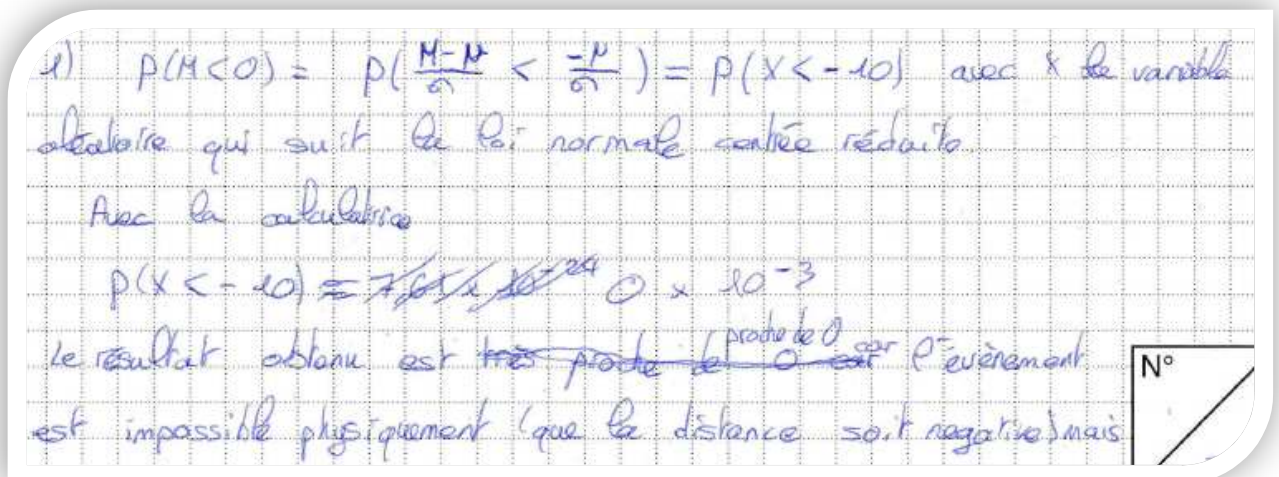 1) P(M<0) = P( (M-μ)/σ < -μ/σ ) = P(X<-10) avec X la variable
aléatoire qui suit la loi normale centrée réduite.
Avec la calculatrice
P(X<-10) = 0 x 10^-3
Le résultat obtenu est proche de 0 car l'évènement
est impossible physiquement (que la distance soit negative) mais
N°